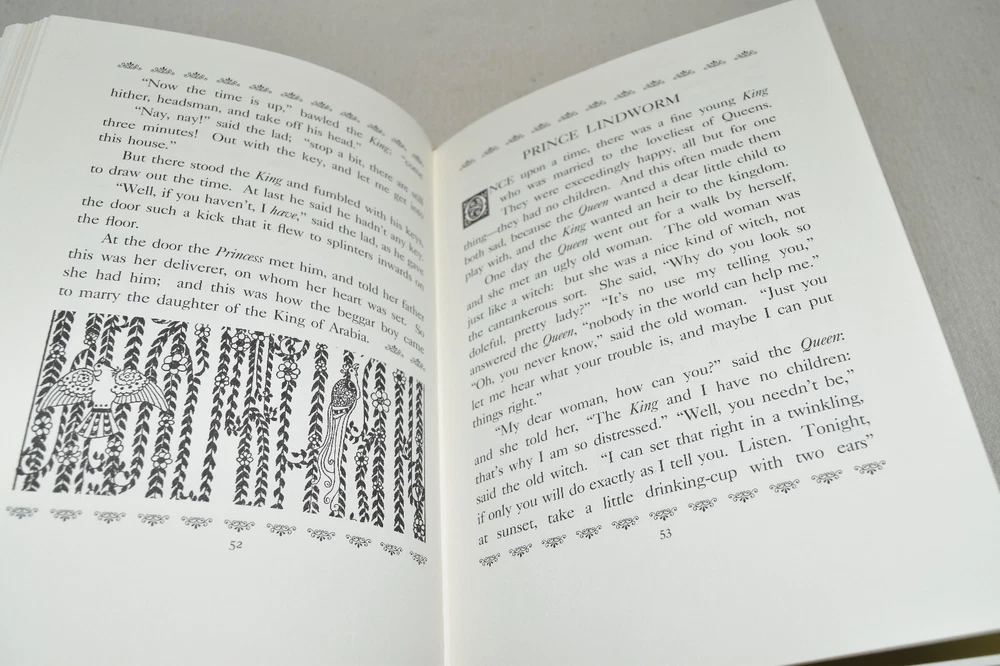 "Now the time is up," bawled the King: "come
hither, headsman, and take off his head."
"Nay, nay!" said the lad; "stop a bit, there are still
three minutes! Out with the key, and let me get into
this house."
But there stood the King and fumbled with his keys,
to draw out the time. At last he said he hadn't any key.
"Well, if you haven't, I have," said the lad, as he gave
the door such a kick that it flew to splinters inwards on
the floor.
At the door the Princess met him, and told her father
this was her deliverer, on whom her heart was set. So
she had him; and this was how the beggar boy came
to marry the daughter of the King of Arabia.
52
PRINCE LINDWORM
ONCE upon a time, there was a fine young King
who was married to the loveliest of Queens.
They were exceedingly happy, all but for one
thing—they had no children. And this often made them
both sad, because the Queen wanted a dear little child to
play with, and the King wanted an heir to the kingdom.
One day the Queen went out for a walk by herself,
and she met an ugly old woman. The old woman was
just like a witch: but she was a nice kind of witch, not
the cantankerous sort. She said, "Why do you look so
doleful, pretty lady?" "It's no use my telling you,"
answered the Queen, "nobody in the world can help me."
"Oh, you never know," said the old woman. "Just you
let me hear what your trouble is, and maybe I can put
things right."
"My dear woman, how can you?" said the Queen:
and she told her, "The King and I have no children:
that's why I am so distressed." "Well, you needn't be,"
said the old witch. "I can set that right in a twinkling,
if only you will do exactly as I tell you. Listen. Tonight,
at sunset, take a little drinking-cup with two ears"
53